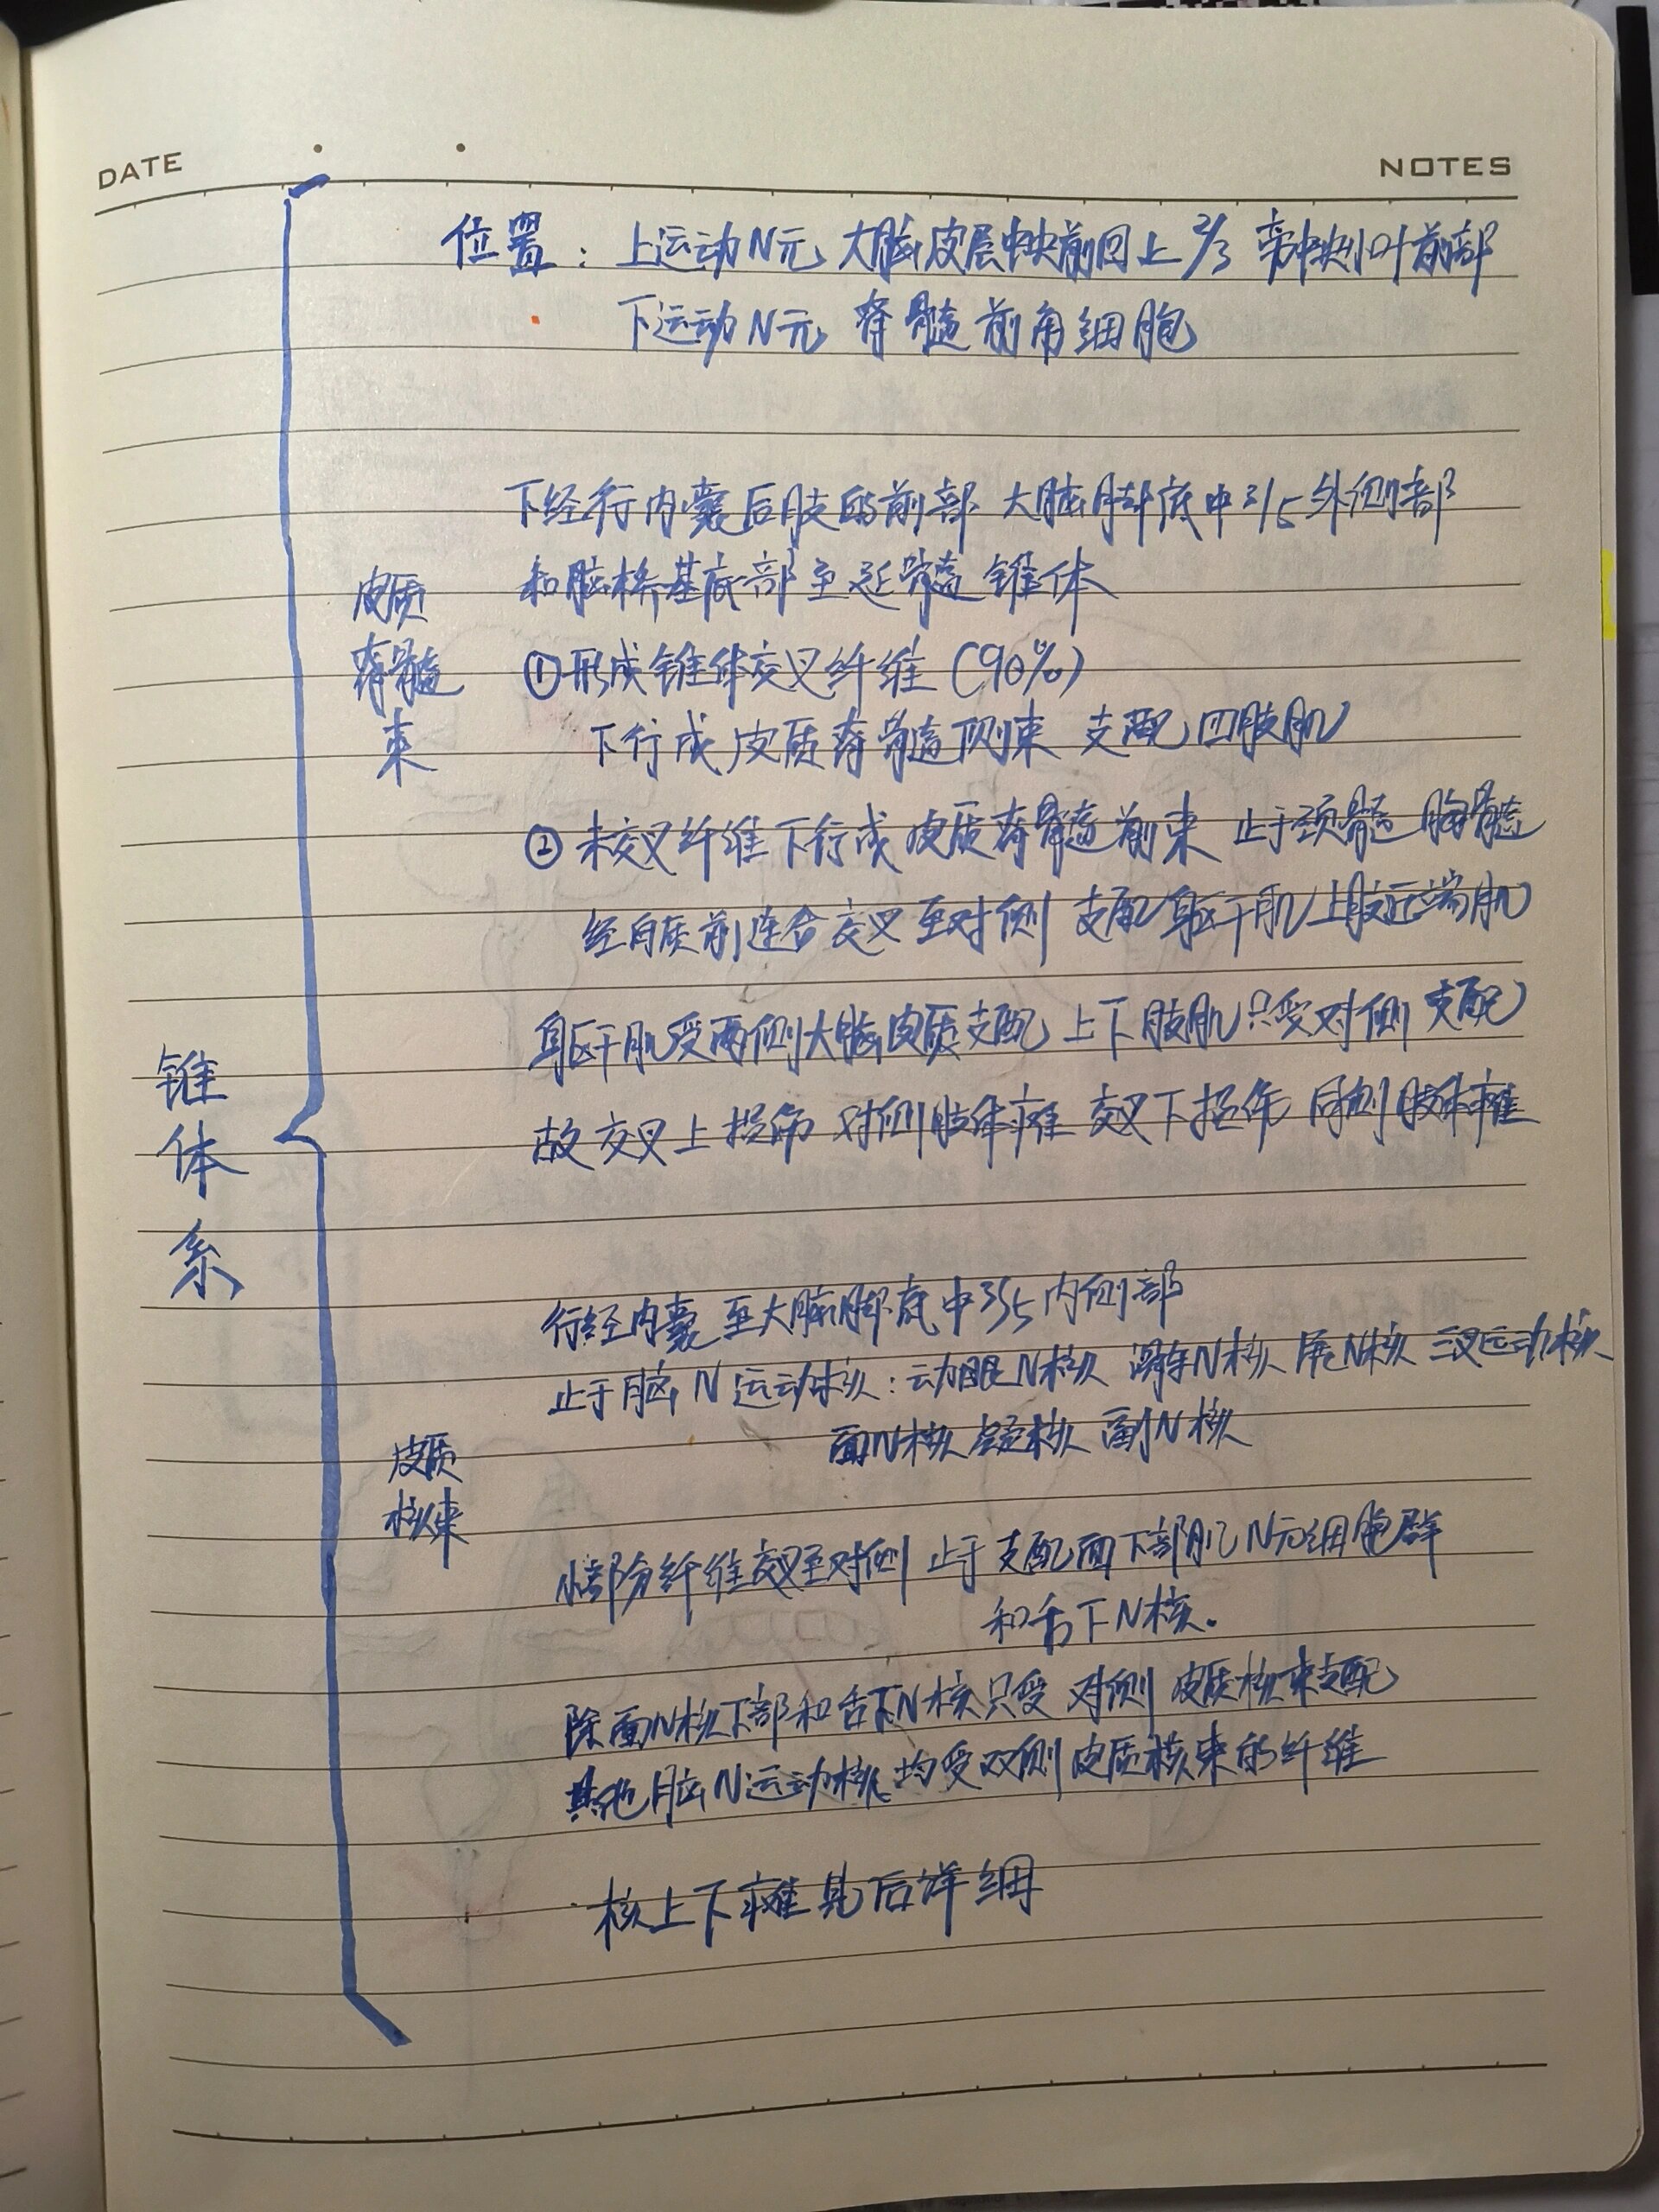 DATE
NOTES
位置：上运动N元 大脑皮层中央前回上2/3 旁中央小叶前部
下运动N元 脊髓前角细胞
下经行内囊后肢的前部 大脑脚底中3/5外侧部
和脑桥基底部至延髓锥体
皮质
脊髓
束
①形成锥体交叉纤维(90%)
下行成皮质脊髓侧束 支配四肢肌
②未交叉纤维下行成皮质脊髓前束 止于颈髓 胸髓
经白质前连合交叉至对侧 支配躯干肌 上肢近端肌
躯干肌受两侧大脑皮质支配 上下肢肌只受对侧支配
故交叉上损伤 对侧肢体瘫 交叉下损伤 同侧肢体瘫
锥
体
系
行经内囊至大脑脚底中3/5内侧部
止于脑N运动核：动眼N核 滑车N核 展N核 三叉运动核
面N核 疑核 副N核
皮质
核束
小部分纤维交叉至对侧 止于支配面下部肌N元细胞群
和舌下N核。
除面N核下部和舌下N核只受对侧皮质核束支配
其他脑N运动核均受双侧皮质核束的纤维
核上下瘫见后详细